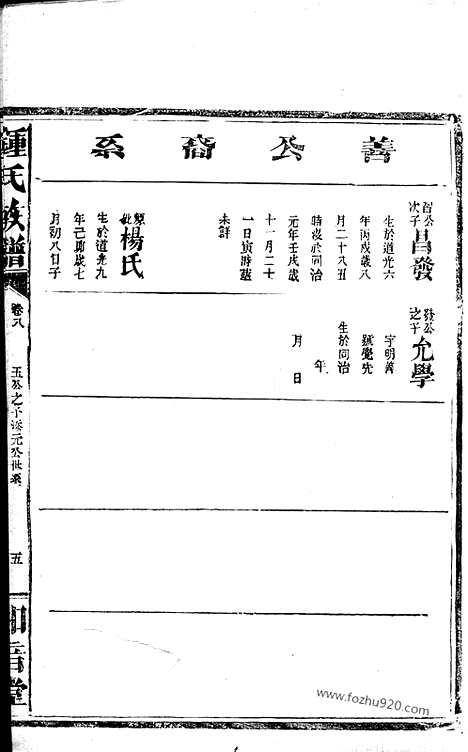 善公裔系
公次子
昌發
生於道光六
年丙戌歲八
月二十八丑
時歿於同治
元年壬戌歲
十一月二十
一日寅時塟
未詳
妣
楊氏
生於道光九
年己丑歲七
月初八日子
發公之子
允學
字明善
號覺先
生於同治
年
月 日
鍾氏族譜
卷八
玉公之子添元公世系
五
知音堂
www.fozhu920.com